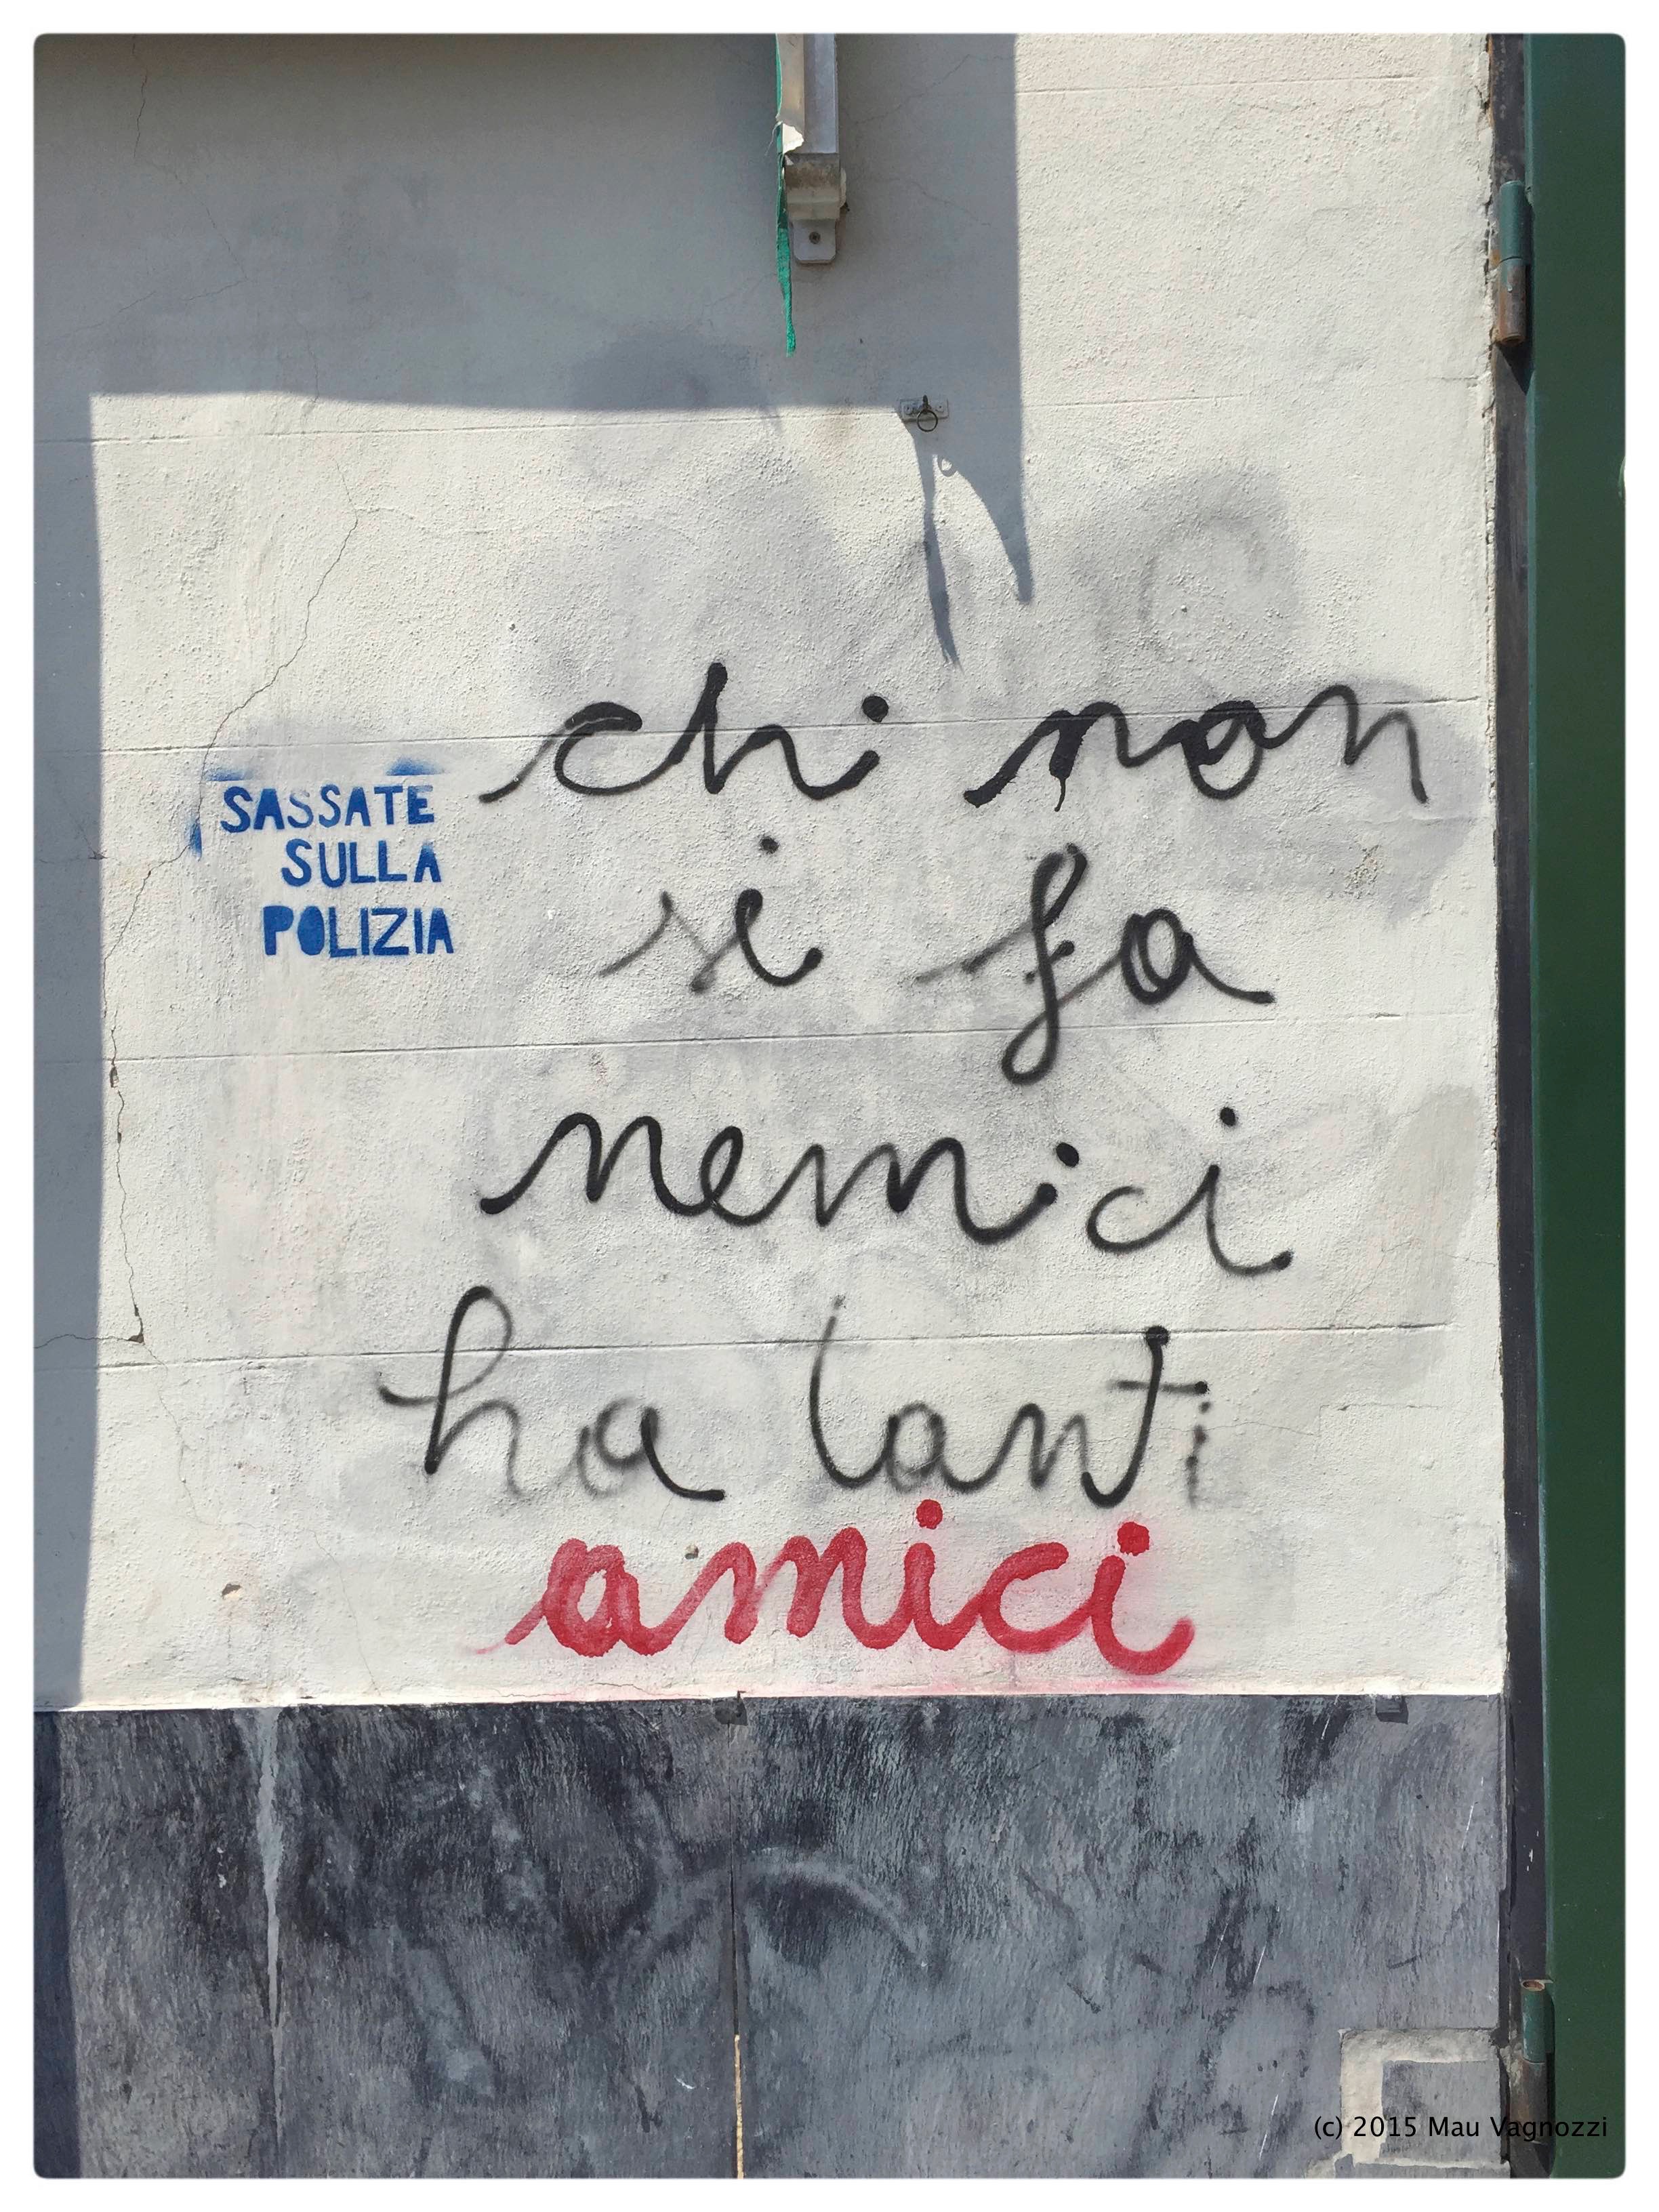 SASSATE
SULLA
POLIZIA
chi non
si fa
nemici
ha tanti
amici
(c) 2015 Mau Vagnozzi